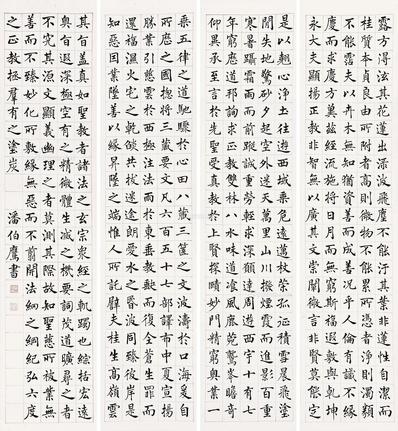 露方得泫其花蓮出淥波飛塵不能汙其葉非蓮性自潔而
桂質本貞良由所附者高則微物不能累所憑者淨則濁類
不能霑夫以卉木無知猶資善而成善況乎人倫有識不緣
慶而求慶方冀茲經流施將日月而無窮斯福遐敷與乾坤
永大夫顯揚正教非智無以廣其文崇闡微言非賢莫能定
是以翹心淨土往遊西域乘危遠邁杖策孤征積雪晨飛塗
閒失地驚砂夕起空外迷天萬里山川撥煙霞而進影百重
寒暑躡霜雨而前蹤誠重勞輕求深願達周遊西宇十有七
年窮歷道邦詢求正教雙林八水味道飡風鹿苑鷲峯瞻奇
仰異承至言於先聖受真教於上賢探賾妙門精窮奧業一
乘五律之道馳驟於心田八藏三篋之文波濤於口海爰自
所歷之國總將三藏要文凡六百五十七部譯布中夏宣揚
勝業引慈雲於西極注法雨於東垂聖教缺而復全蒼生罪而
還福濕火宅之乾燄共拔迷途朗愛水之昏波同臻彼岸是
知惡因業墜善以緣昇昇墜之端惟人所託譬夫桂生高嶺雲
其旨蓋真如聖教者諸法之玄宗眾經之軌躅也綜括宏遠
奧旨遐深極空有之精微體生滅之機要詞茂道曠尋之者
不究其源文顯義幽理之者莫測其際故知聖慈所被業無
善而不臻妙化所敷緣無惡而不翦開法網之綱紀弘六度
之正教拯羣有之塗炭
潘伯鷹書